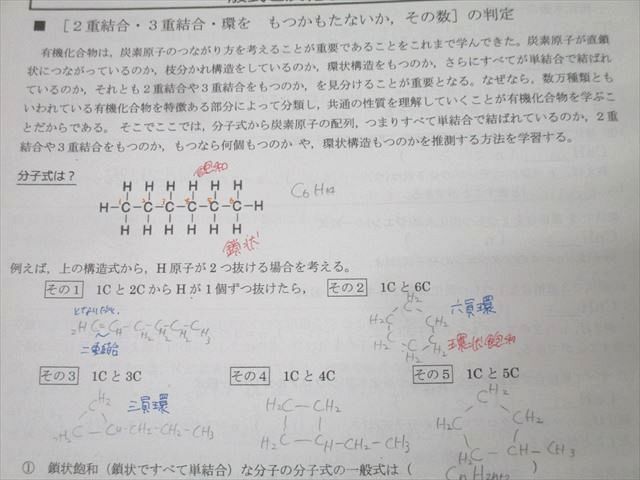 ■ [2重結合・3重結合・環を もつかもたないか，その数] の判定
有機化合物は，炭素原子のつながり方を考えることが重要であることをこれまで学んできた。炭素原子が直鎖
状につながっているのか，枝分かれ構造をしているのか，環状構造をもつのか，さらにすべてが単結合で結ばれ
ているのか，それとも2重結合や3重結合をもつのか，を見分けることが重要となる。なぜなら，数万種類とも
いわれている有機化合物を特徴ある部分によって分類し，共通の性質を理解していくことが有機化合物を学ぶこ
とだからである。 そこでここでは，分子式から炭素原子の配列，つまりすべて単結合で結ばれているのか，2重
結合や3重結合をもつのか，もつなら何個もつのか や，環状構造もつのかを推測する方法を学習する。
分子式は？
飽和
H H H H H H
H-C-C-C-C-C-C-H
1 2 3 4 5 6
H H H H H H
C6H14
鎖状
例えば，上の構造式から，H原子が2つ抜ける場合を考える。
その1 1Cと2CからHが1個ずつ抜けたら，
その2 1Cと6C
H2C=CH-CH2-CH2-CH2-CH3
二重結合
CH2
H2C CH2
H2C CH2
CH2
六員環
環状飽和
その3 1Cと3C
その4 1Cと4C
その5 1Cと5C
CH2
H2C-CH-CH2-CH2-CH3
三員環
H2C-CH2
H2C-CH-CH2-CH3
CH2
H2C CH2
H2C-CH-CH3
① 鎖状飽和（鎖状ですべて単結合）な分子の分子式の一般式は（ CnH2n+2